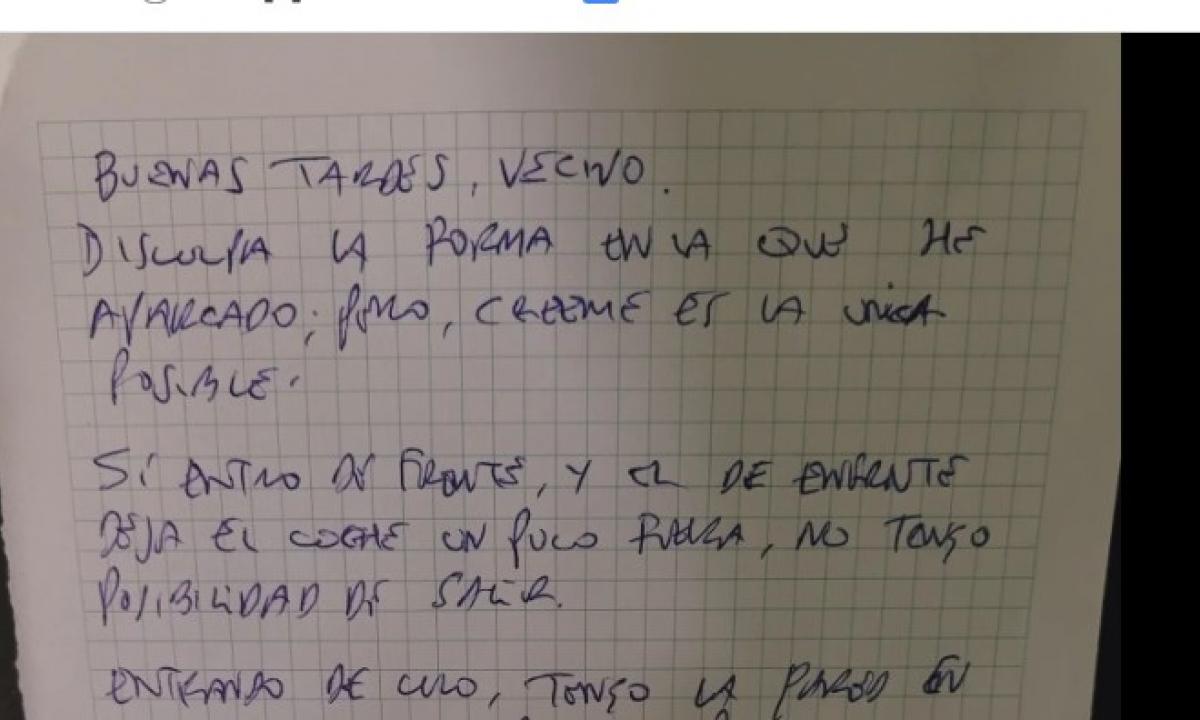 BUENAS TARDES, VECINO.
DISCULPA LA FORMA EN LA QUE HE
APARCADO; PERO, CREEME ES LA UNICA
POSIBLE.
SI ENTRO DE FRENTE, Y EL DE ENFRENTE
DEJA EL COCHE UN POCO FUERA, NO TENGO
POSIBILIDAD DE SALIR.
ENTRANDO DE CULO, TENGO LA PARED EN